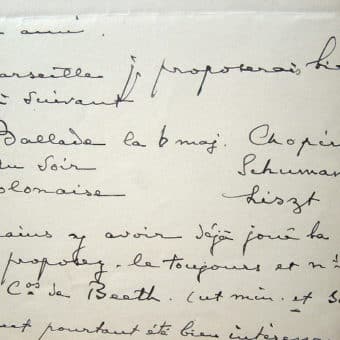 ami.
arseille je proposerais bie
suivant
Ballade la b maj. Chopin
du Soir Schuman
olonaise Liszt
ains y avoir déjà joué la
proposez-le toujours et n
Cos de Beeth. (ut min. et S
pourtant été bien intéress